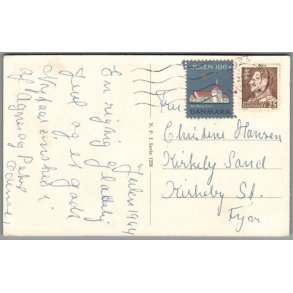 Julen 1964
En rigtig glædelig
Jul og et godt
Nytaar ønskes i
af Agnes og Peter
Odense
N. P. I. Serie 1228
JULEN 1964
DANMARK
DANMARK
25
Fru
Christine Hansen
Kirkeby Sand
Kirkeby St.
Fyn